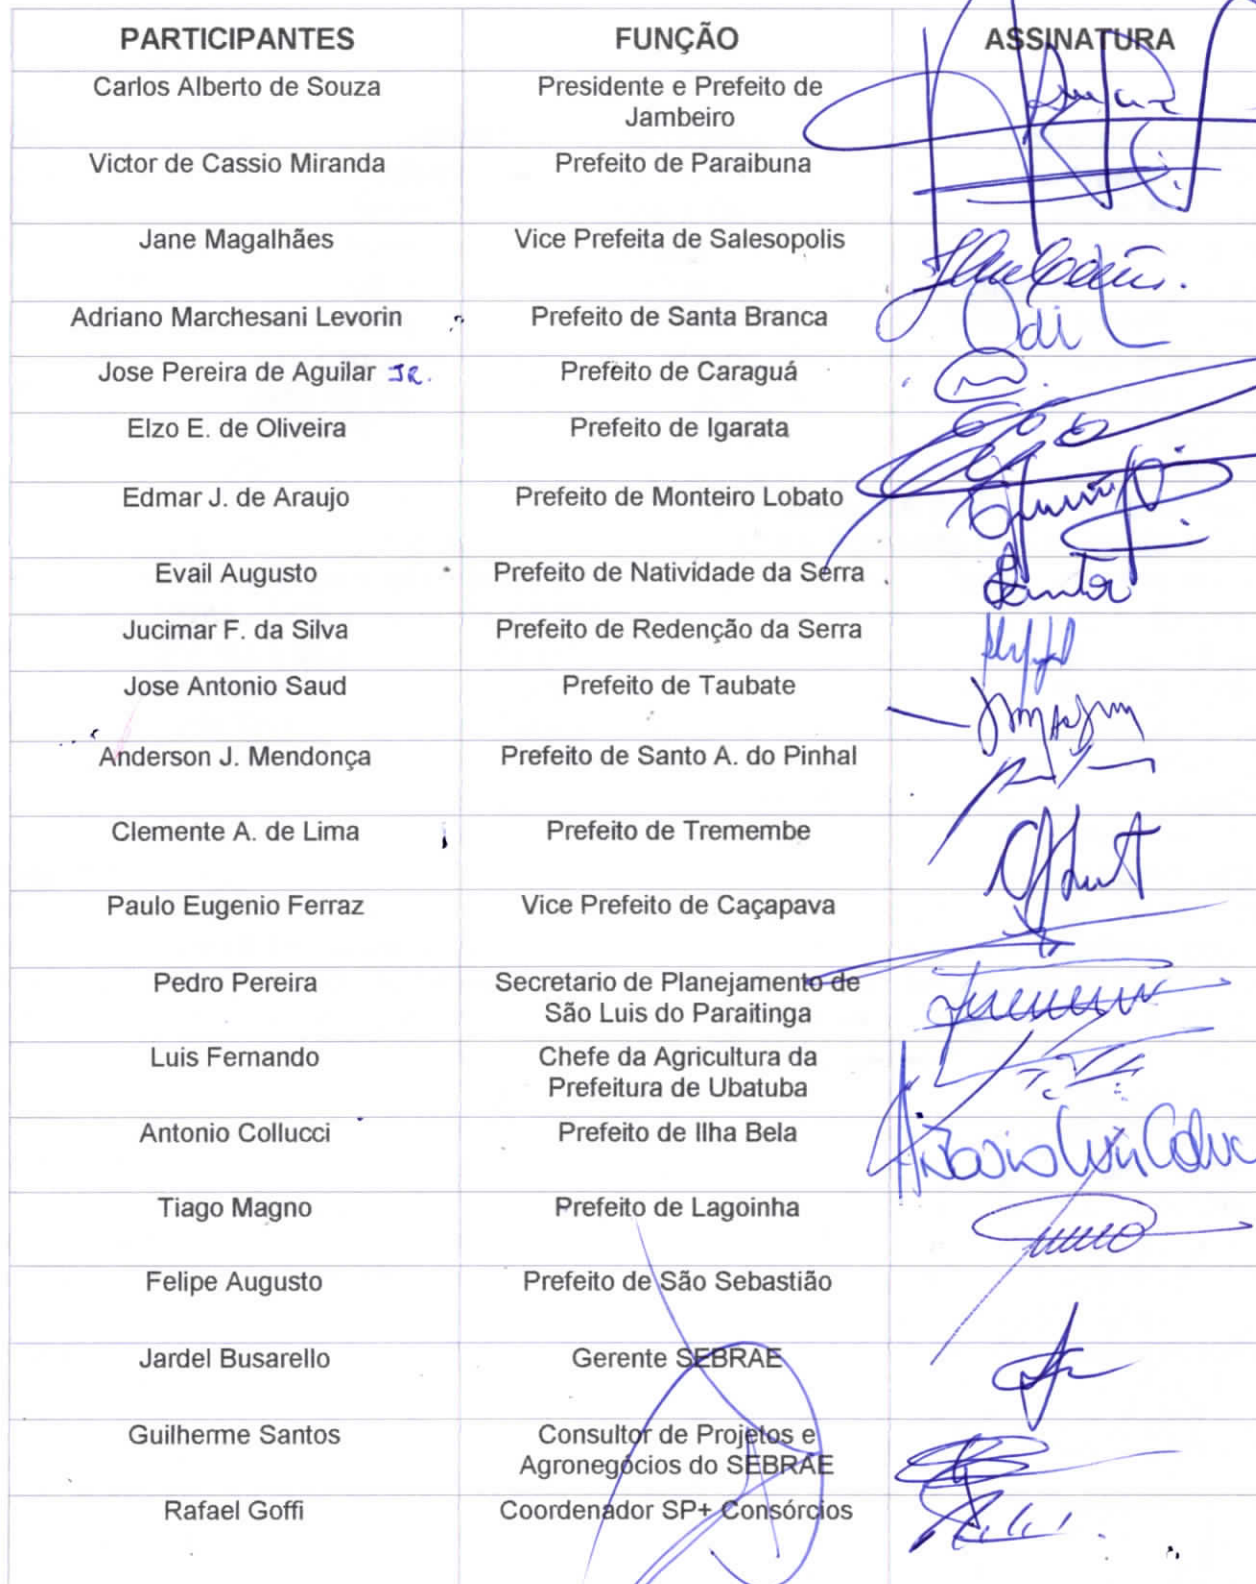 PARTICIPANTES FUNÇÃO ASSINATURA
Carlos Alberto de Souza Presidente e Prefeito de
Jambeiro
Victor de Cassio Miranda Prefeito de Paraibuna
Jane Magalhães Vice Prefeita de Salesopolis
Adriano Marchesani Levorin Prefeito de Santa Branca
Jose Pereira de Aguilar JR. Prefeito de Caraguá
Elzo E. de Oliveira Prefeito de Igarata
Edmar J. de Araujo Prefeito de Monteiro Lobato
Evail Augusto Prefeito de Natividade da Serra
Jucimar F. da Silva Prefeito de Redenção da Serra
Jose Antonio Saud Prefeito de Taubate
Anderson J. Mendonça Prefeito de Santo A. do Pinhal
Clemente A. de Lima Prefeito de Tremembe
Paulo Eugenio Ferraz Vice Prefeito de Caçapava
Pedro Pereira Secretario de Planejamento de
São Luis do Paraitinga
Luis Fernando Chefe da Agricultura da
Prefeitura de Ubatuba
Antonio Collucci Prefeito de Ilha Bela
Tiago Magno Prefeito de Lagoinha
Felipe Augusto Prefeito de São Sebastião
Jardel Busarello Gerente SEBRAE
Guilherme Santos Consultor de Projetos e
Agronegócios do SEBRAE
Rafael Goffi Coordenador SP+ Consórcios